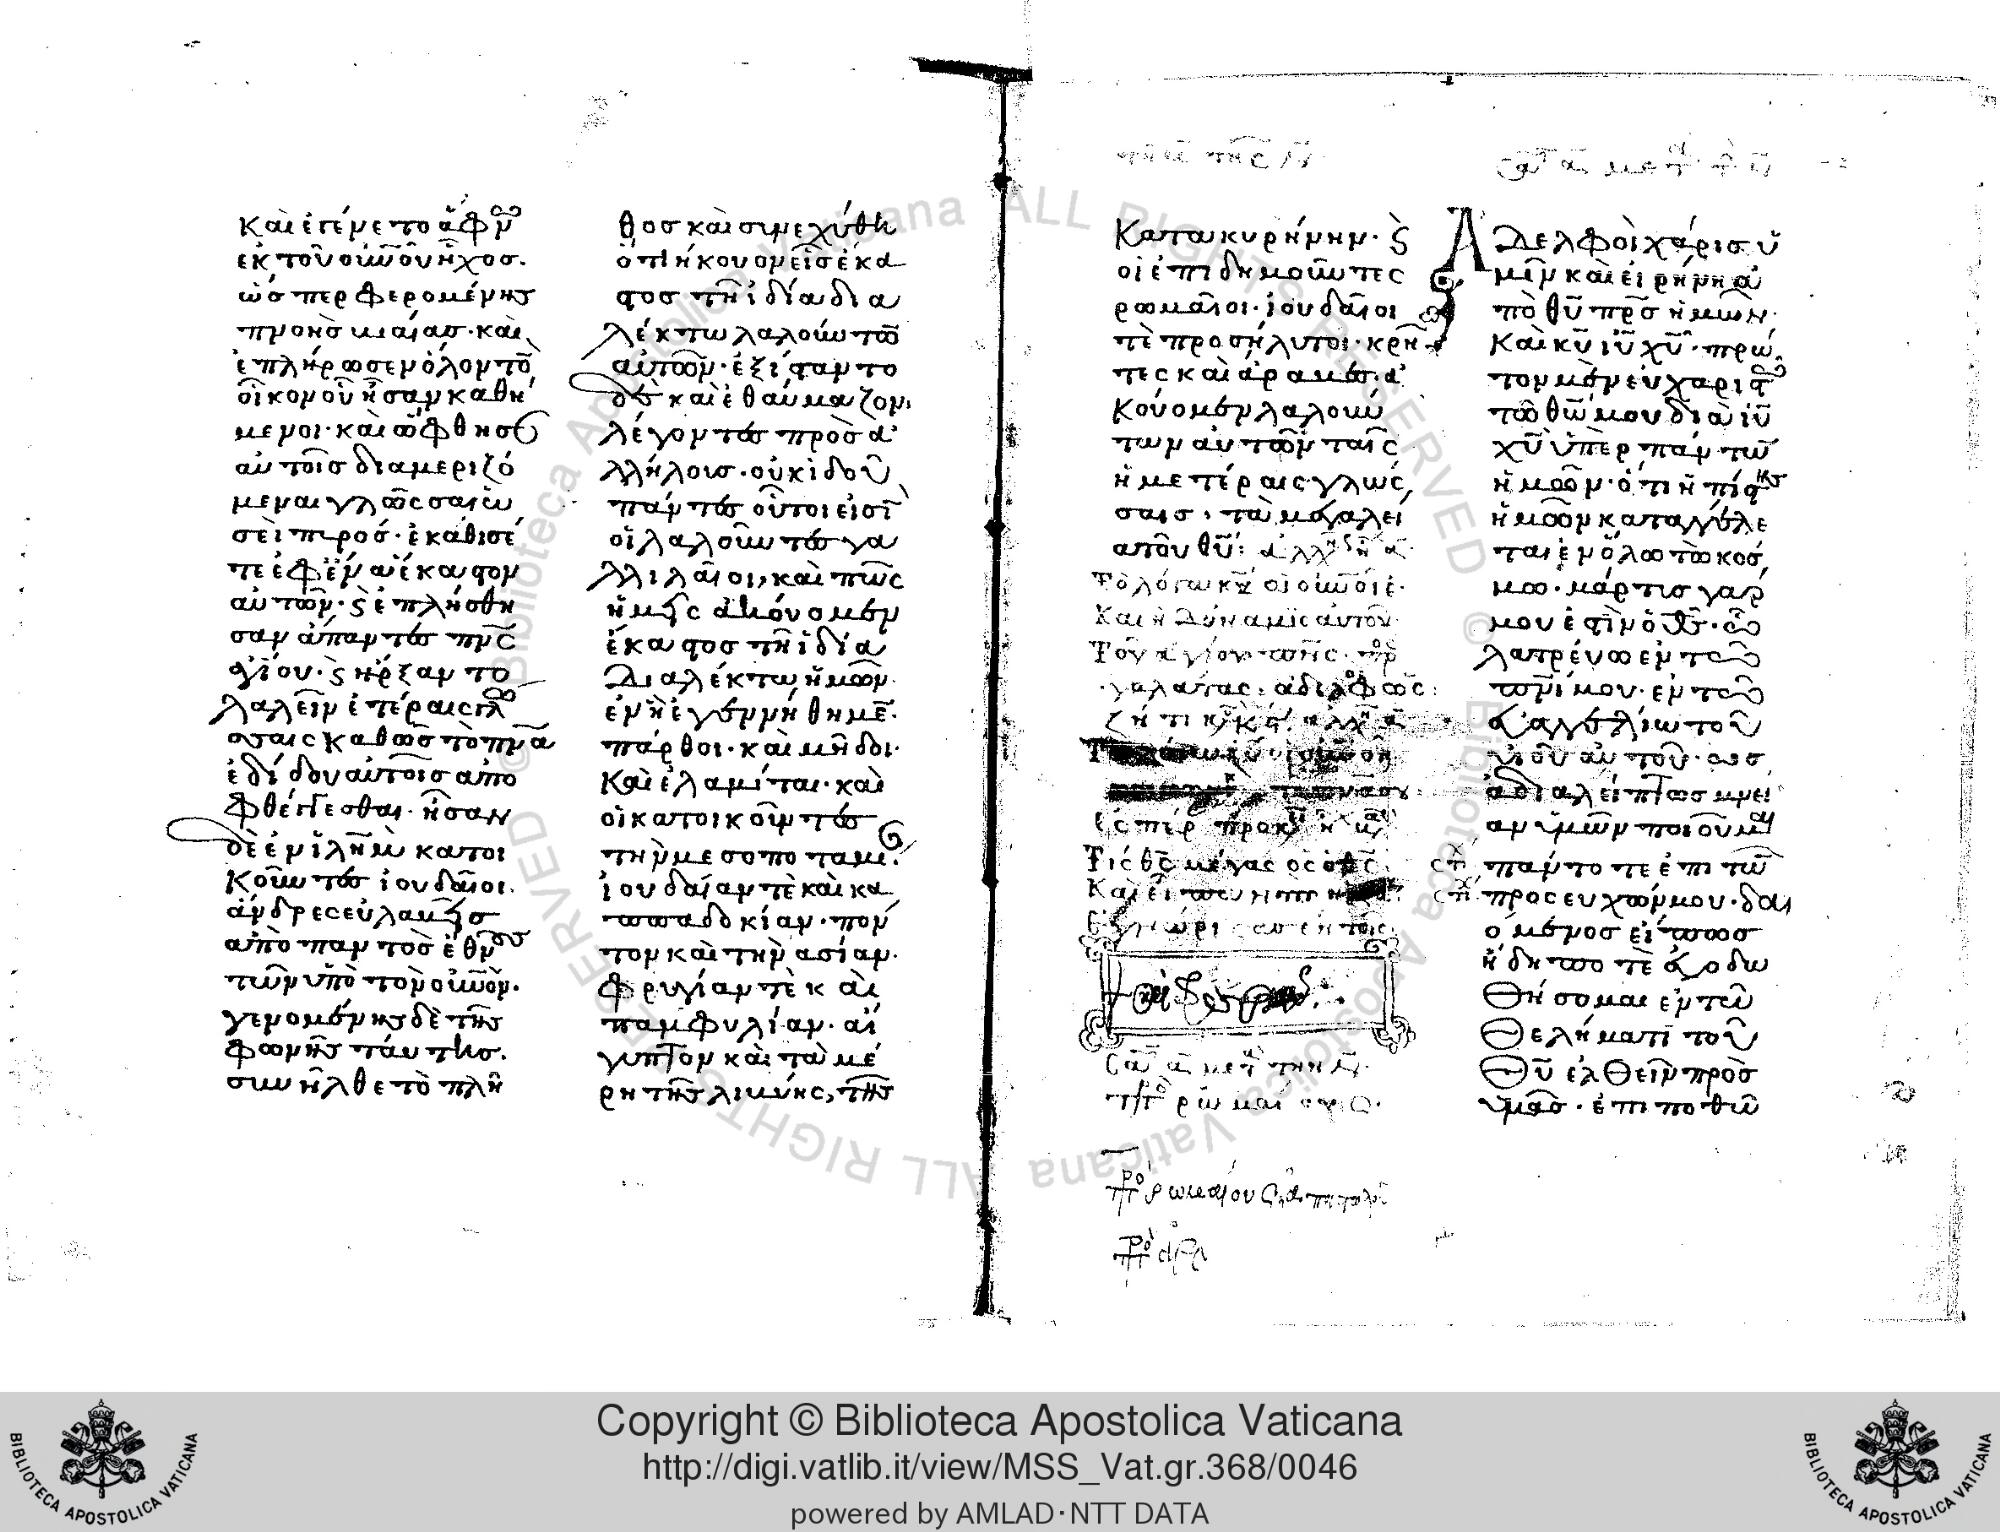 Και ἐγένετο ἄφνω
ἐκ τοῦ οὐνοῦ ἦχος.
ὡσπερ φερομένησ
πνοῆσ βιαίασ· καὶ
ἐπλήρωσεν ὅλον τὸ
οἶκον οὗ ἦσαν καθή
μενοι· καὶ ὤφθησαν
αὐτοῖσ διαμεριζό
μεναι γλῶσσαι ὡ
σεὶ πυρόσ· ἐκάθισέ
τε ἐφ ἕνα ἕκαστον
αὐτῶν· καὶ ἐπλήσθη
σαν ἅπαντεσ πνσ
ἁγίου· καὶ ἤρξαντο
λαλεῖν ἑτέραις γλώ
σσαις καθὼσ τὸ πνα
ἐδίδου αὐτοῖσ ἀπο
φθέγγεσθαι· ἦσαν
δὲ ἐν ἰλημ κατοι
κοῦντεσ ἰουδαῖοι.
ἄνδρες εὐλαβεῖσ
ἀπὸ παντὸσ ἔθνουσ
τῶν ὑπὸ τὸν οὐνόν·
γενομένησ δὲ τῆσ
φωνῆσ ταύτησ.
συνῆλθε τὸ πλῆ
θοσ καὶ συνεχύθη
ὅτι ἤκουον εἷσ ἕκα
στοσ τῆ ἰδία δια
λέκτω λαλούντων
αὐτῶν· ἐξίσταντο
δὲ καὶ ἐθαύμαζον,
λέγοντεσ πρὸσ ἀ
λλήλουσ· οὐκ ἰδοῦ
πάντεσ οὗτοι εἰσὶ
οἱ λαλοῦντεσ γα
λλιλαῖοι, καὶ πῶς
ἡμεῖς ἀκούομεν
ἕκαστοσ τῆ ἰδία
διαλέκτω ἡμῶν
ἐν ἧ ἐγεννήθημε·
πάρθοι· καὶ μῆδοι·
Καὶ ἐλαμῖται· καὶ
οἱ κατοικοῦντεσ
τὴν μεσοποταμι.
ἰουδαίαν τὲ καὶ κα
ππαδοκίαν· πόν
τον καὶ τὴν ασίαν·
φρυγίαν τὲ καὶ
παμφυλίαν· αἴ
γυπτον καὶ τὰ μέ
ρη τῆσ λιβύης, τῆσ
Κατα κυρήνην· καὶ
οἱ ἐπιδημοῦντες
ρωμαῖοι· ἰουδαῖοι
τὲ προσήλυτοι· κρῆ
τες καὶ ἄραβεσ· ἀ
κούομεν λαλούν
των αὐτῶν ταῖς
ἡμετέραις γλώσ
σαισ· τὰ μεγαλεῖ
α τοῦ θυ:
Καὶ ἡ δύναμις αὐτοῦ·
Τίς θς μέγας ὁς ὁ θς
Ἐγνώρισας ἐν τοῖς
Ἀδελφοὶ χάρισ ὑ
μῖν καὶ εἰρήνη ἀ
πὸ θυ πρσ ἡμῶν·
Καὶ κυ ιυ χυ· πρῶ
τον μὲν εὐχαριστῶ
τῶ θῶ μου διὰ ιυ
χυ ὑπὲρ πάντων
ἡμῶν· ὅτι ἡ πίστισ
ἡμῶν καταγγέλε
ται ἐν ὅλω τῶ κόσ
μω· μάρτισ γαρ
μου ἐστὶν ὁ θσ· ὧ
λατρεύω ἐν τῶ
πνι μου· ἐν τῶ
εὐαγγελίω τοῦ
υἱοῦ αὐτοῦ· ὡσ
ἀδιαλείπτωσ μνεί
αν ὑμῶν ποιοῦμαι
πάντοτε ἐπι τῶν
προσευχῶν μου· δε
όμενοσ εἴπωσ
ἤδη ποτὲ εὐοδω
θήσομαι ἐν τῶ
θελήματι τοῦ
θυ ἐλθεῖν πρὸσ
ὑμᾶσ· ἐπιποθῶ
Copyright © Biblioteca Apostolica Vaticana
http://digi.vatlib.it/view/MSS_Vat.gr.368/0046
powered by AMLAD·NTT DATA
BIBLIOTECA APOSTOLICA VATICANA
BIBLIOTECA APOSTOLICA VATICANA